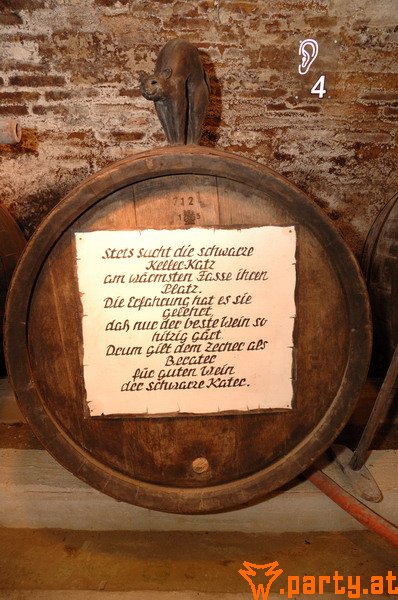 4
712
Stets sucht die schwarze
Keller-Katz
am wärmsten Fasse ihren
Platz.
Die Erfahrung hat es sie
gelehrt,
daß nur der beste Wein so
hitzig gärt
Drum gilt dem Zecher als
Berater
für guten Wein
der schwarze Kater.
.party.at